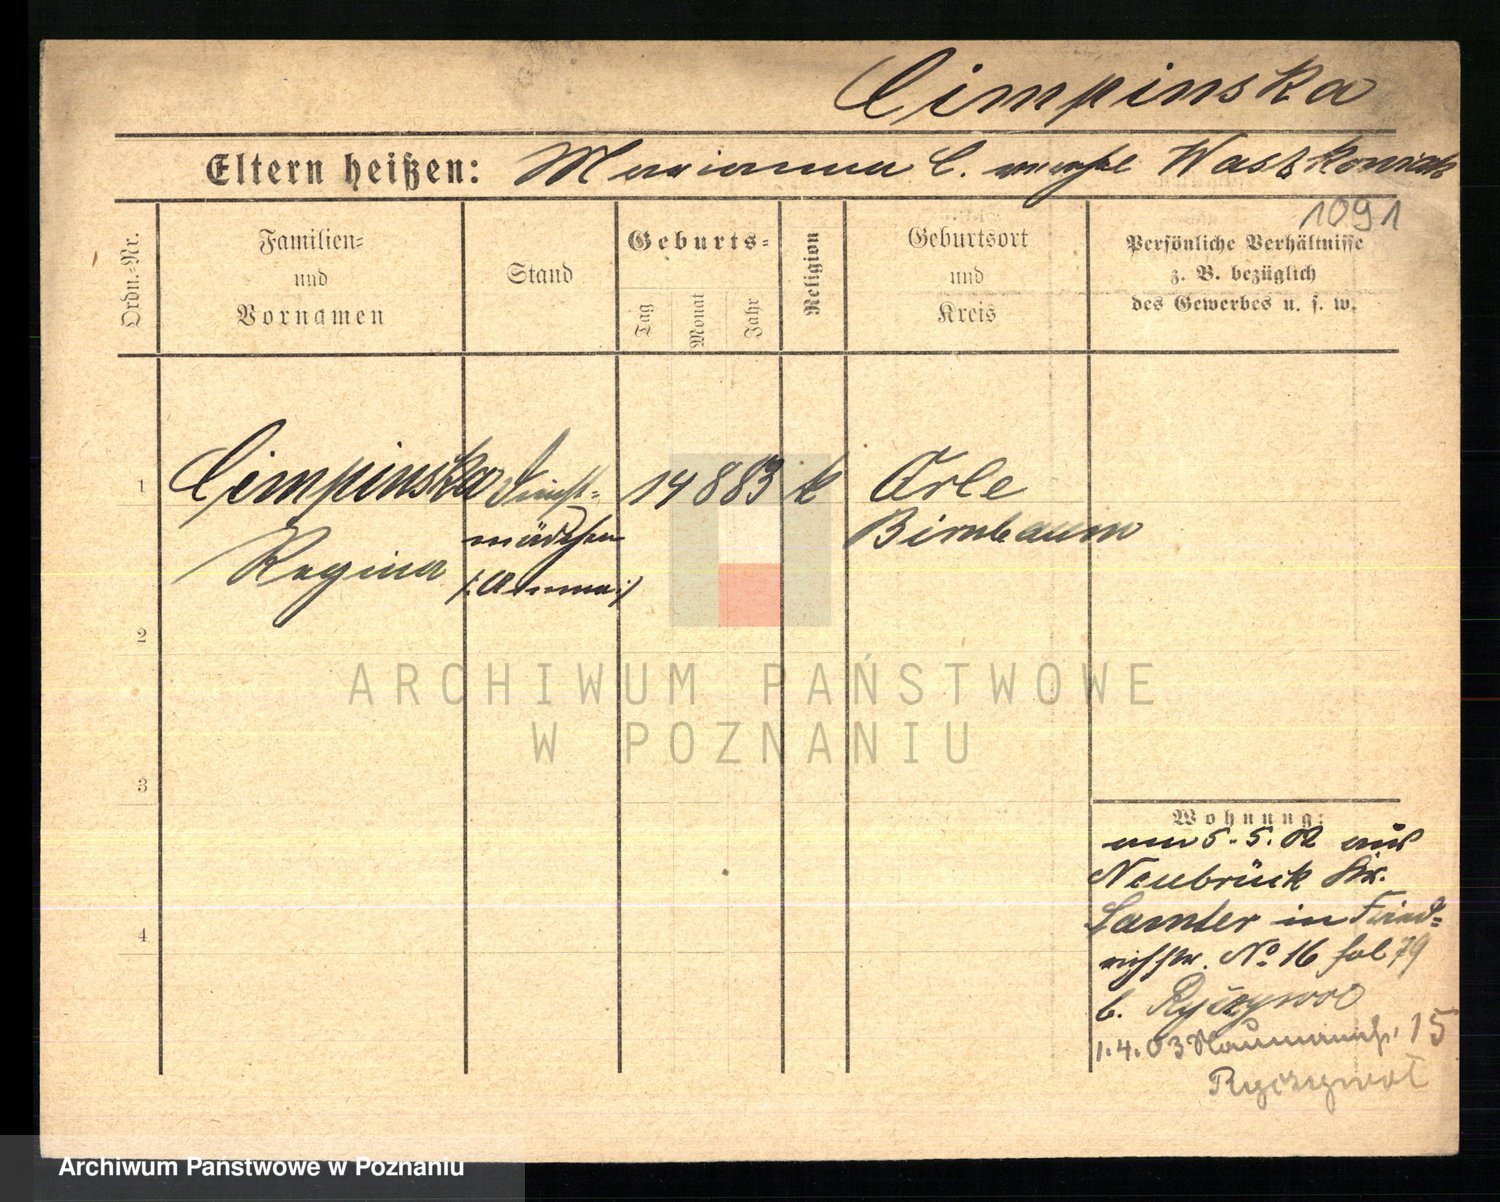 Cimpinska
Eltern heißen: Marianna C. Waskowiak
1091
Ordn.=Nr.
Familien=
und
Vornamen
Stand
Geburts=
Tag
Monat
Jahr
Religion
Geburtsort
und
Kreis
Persönliche Verhältnisse
z. B. bezüglich
des Gewerbes u. s. w.
1 Cimpinska Dienst= 14 8 83 k Orle
Regina mädchen Birnbaum
/:Amme:/
2
3
4
Wohnung:
am 5. 5. 02 aus
Neubrück Kr.
Samter in Fried=
richstr. No 16 fol 79
b. Ryczywol
1.4.03 Naumannstr. 15
Ryczywol
ARCHIWUM PAŃSTWOWE
W POZNANIU
Archiwum Państwowe w Poznaniu